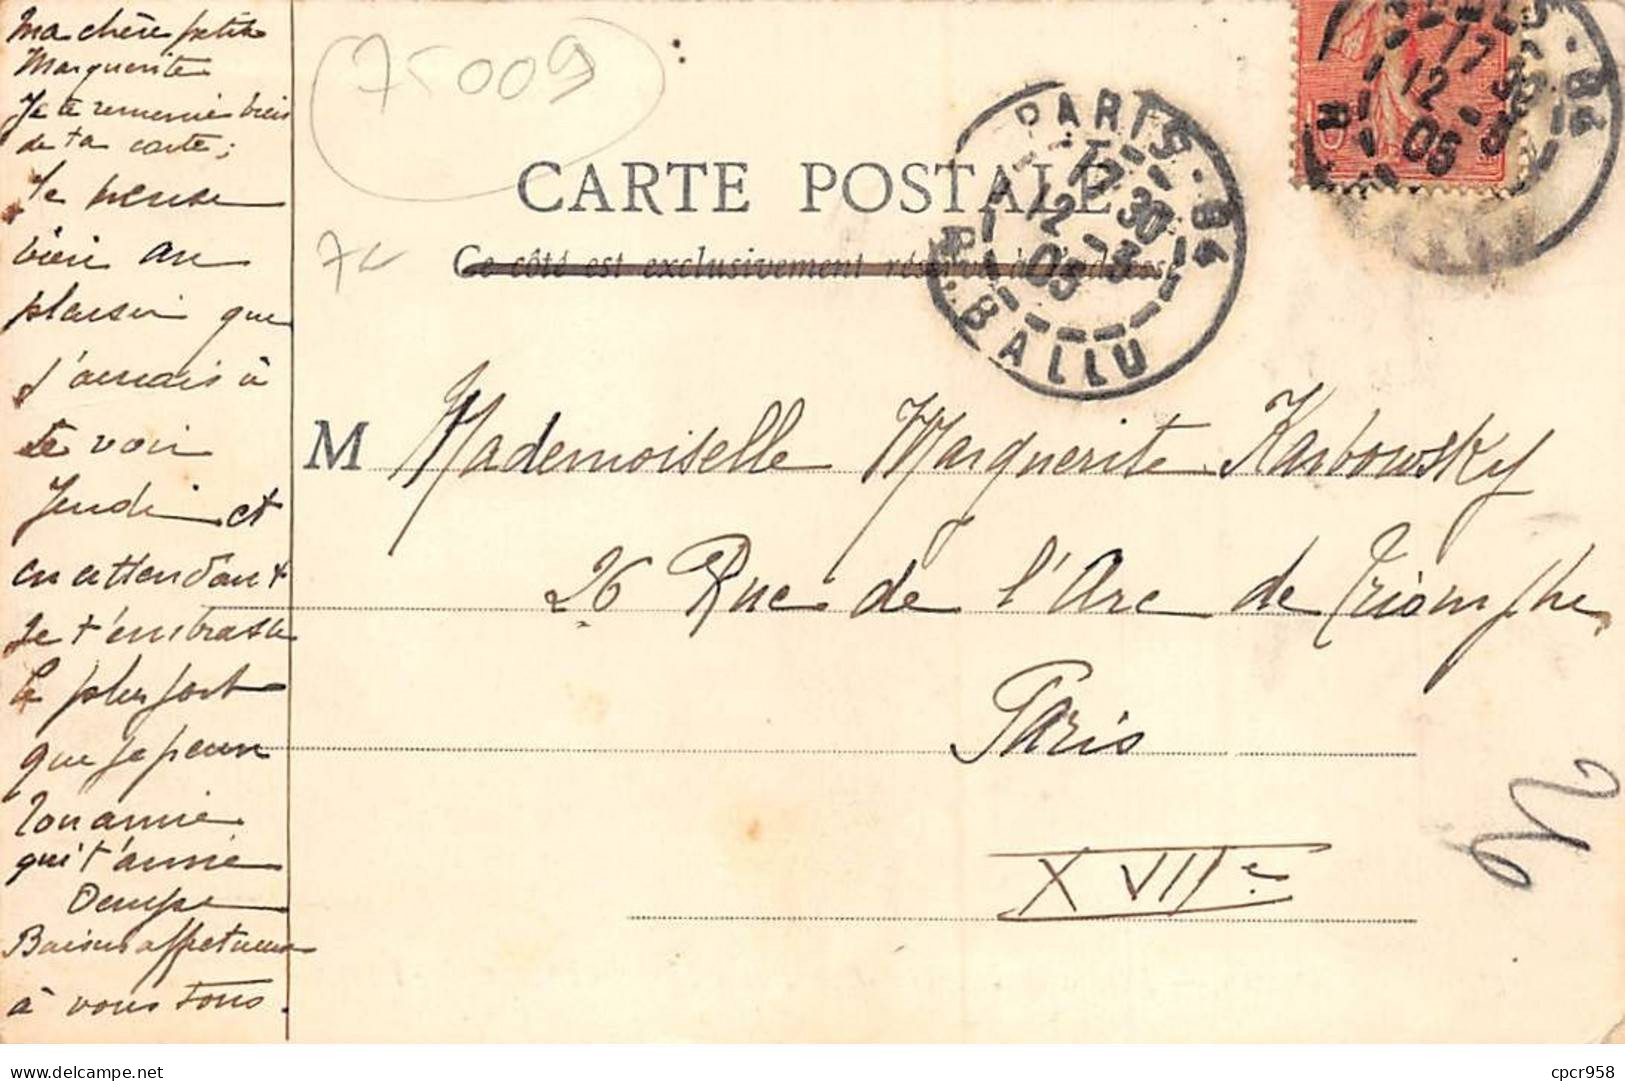 Ma chère petite
Marguerite
Je te remercie bien
de ta carte;
Je pense
bien au
plaisir que
j'aurais à
te voir
Jeudi et
en attendant
Je t'embrasse
le plus fort
que je peux
Ton amie
qui t'aime
Denyse
Baisers affectueux
à vous tous.
75009
CARTE POSTALE
Ce côté est exclusivement réservé à l'adresse
74
PARIS · 84
17 30
12 - 3
05
R. BALLU
· 84
17
12 - 3
05
R
10
M Mademoiselle Marguerite Karbowsky
26 Rue de l'Arc de Triomphe
Paris
XVIIe
cpcr958